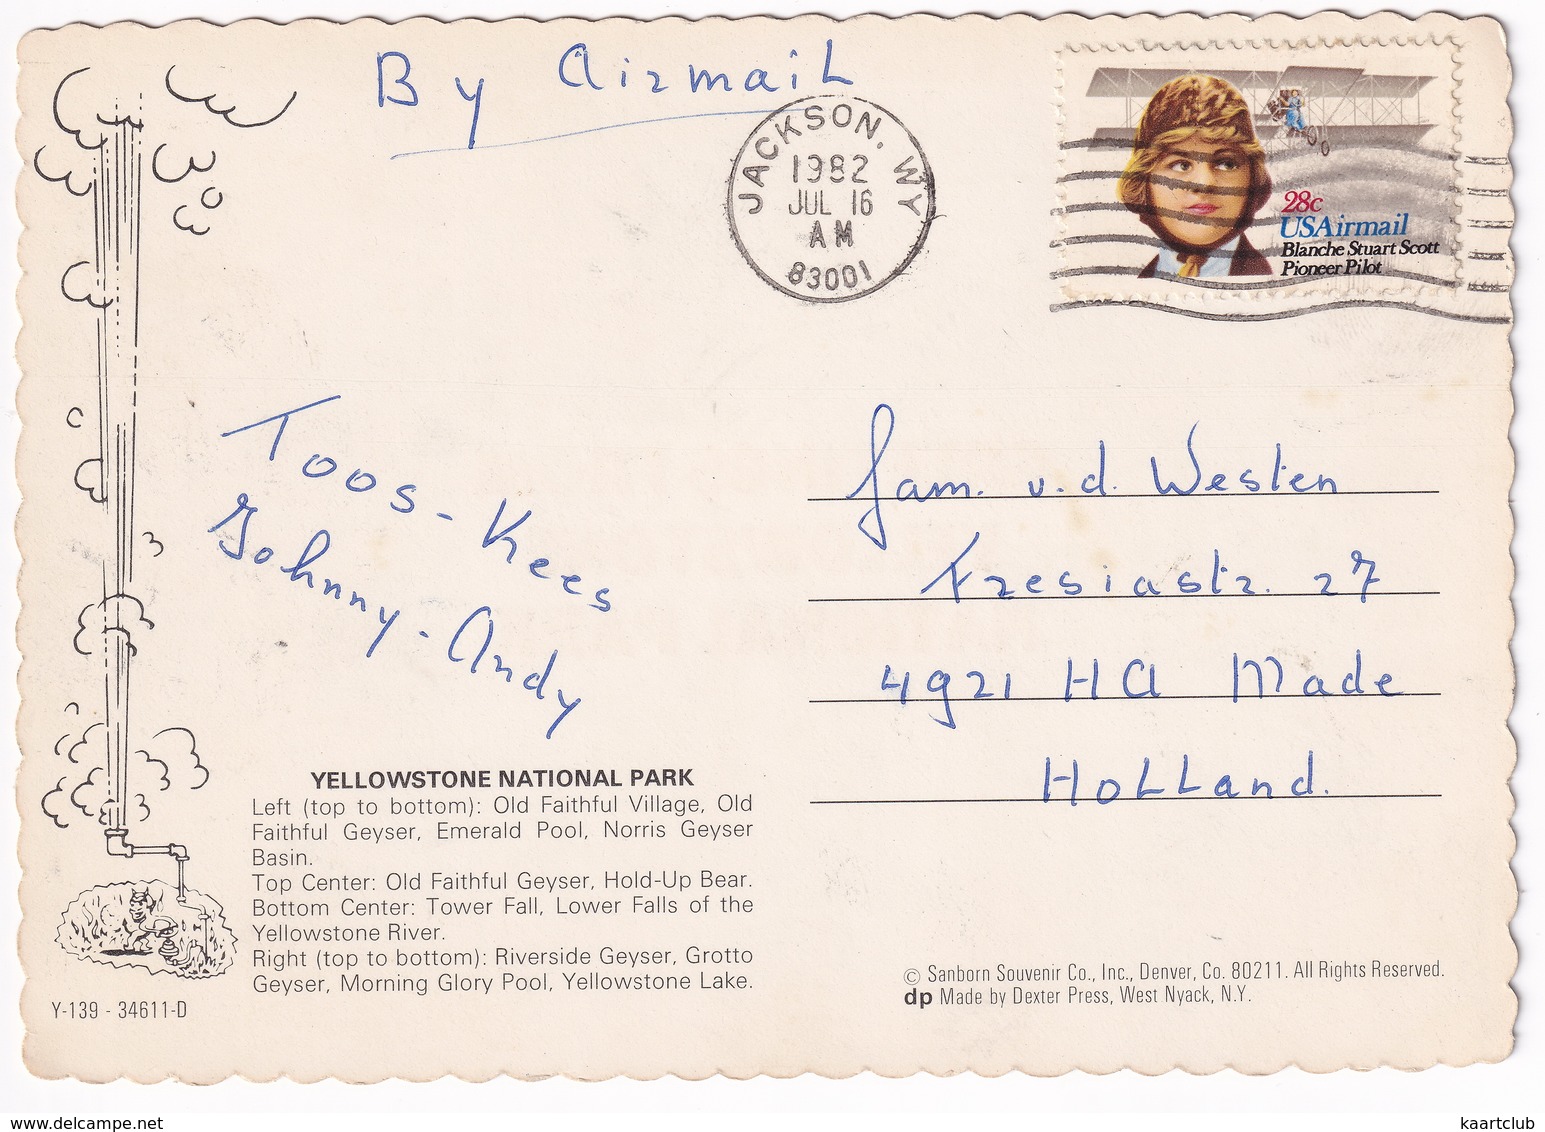 By Airmail
JACKSON, WY
1982
JUL 16
AM
83001
28c
USAirmail
Blanche Stuart Scott
Pioneer Pilot
Toos - Kees
Johnny - Andy
Fam. v.d. Westen
Fresiastr. 27
4921 HA Made
HoLLand.
YELLOWSTONE NATIONAL PARK
Left (top to bottom): Old Faithful Village, Old
Faithful Geyser, Emerald Pool, Norris Geyser
Basin.
Top Center: Old Faithful Geyser, Hold-Up Bear.
Bottom Center: Tower Fall, Lower Falls of the
Yellowstone River.
Right (top to bottom): Riverside Geyser, Grotto
Geyser, Morning Glory Pool, Yellowstone Lake.
Y-139 - 34611-D
© Sanborn Souvenir Co., Inc., Denver, Co. 80211. All Rights Reserved.
dp Made by Dexter Press, West Nyack, N.Y.
www.delcampe.net
kaartclub